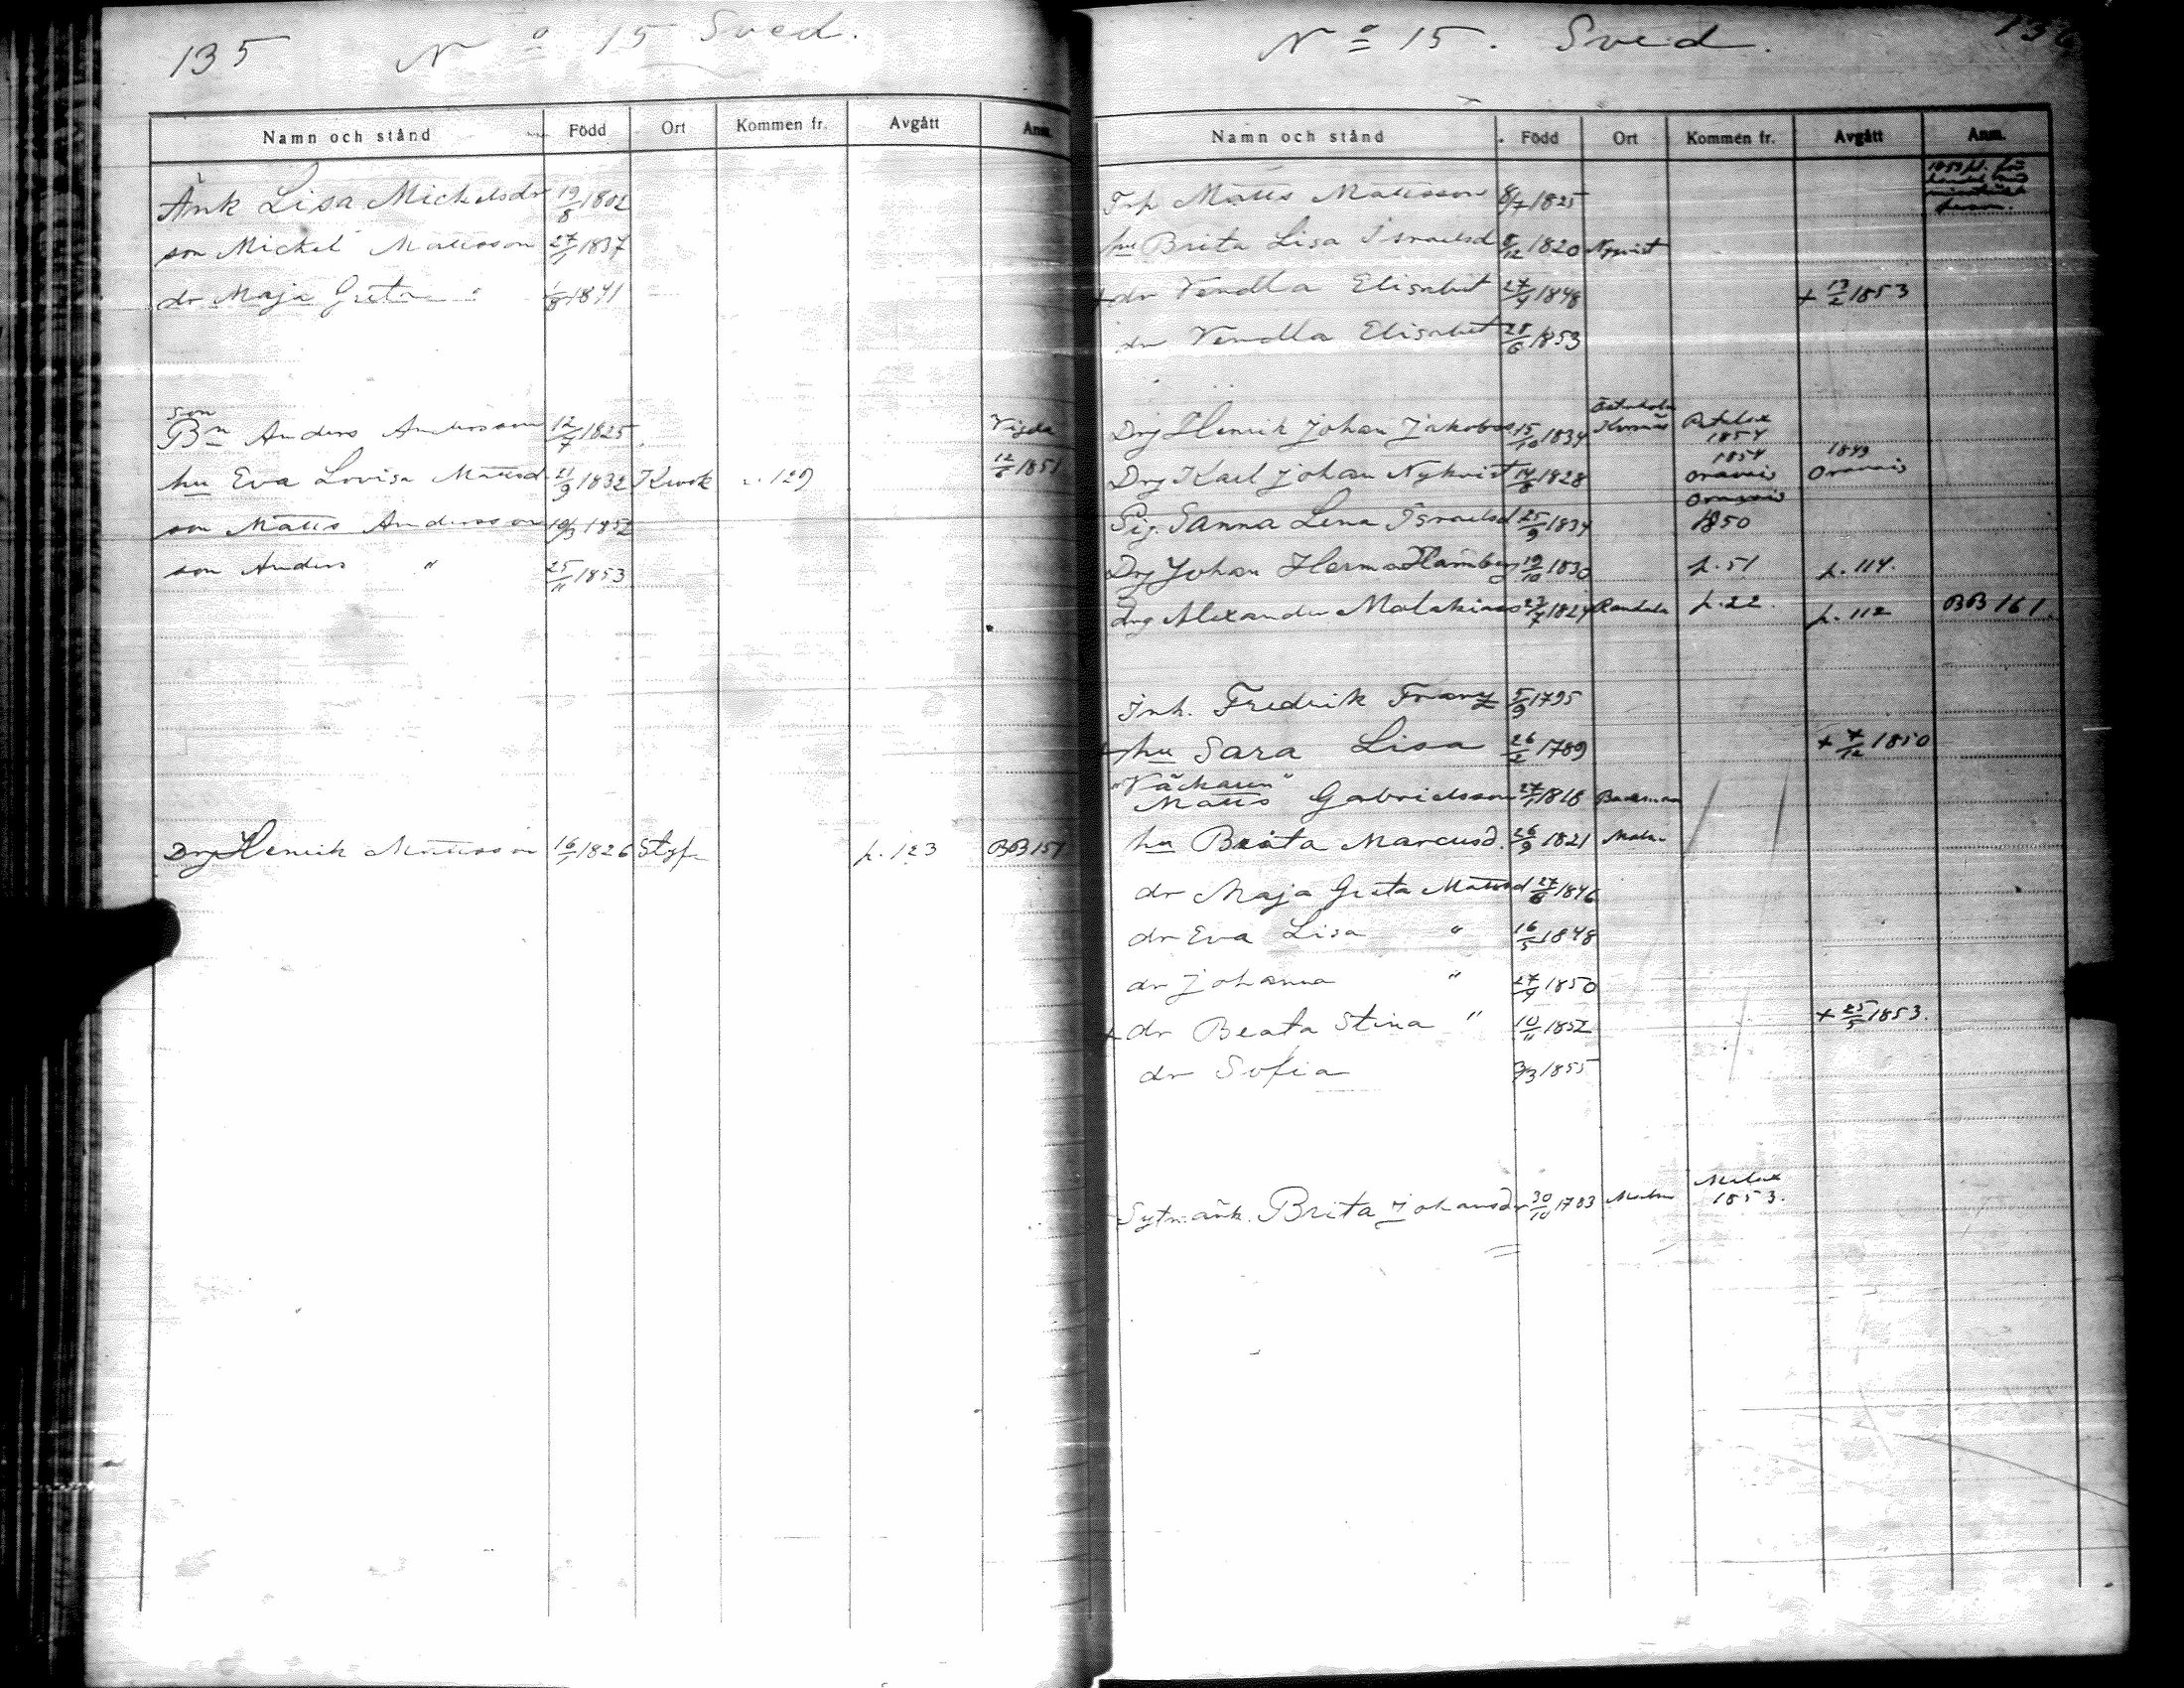 135 No 15 Sved.
Namn och stånd Född Ort Kommen fr. Avgått Anm.
Änk Lisa Mickelsdr 19/8 1802
son Mickel Mattsson 27/1 1837
dr Maja Greta " 1/8 1841
son
Bn Anders Andersson 12/7 1825 Vigda
hu Eva Lovisa Mattsd 21/9 1832 Krook p. 129 12/6 1851
son Matts Andersson 19/3 1852
son Anders " 25/11 1853
Drg Henrik Mattsson 16/1 1826 Styf p. 123 BB 151
No 15. Sved. 136
Namn och stånd Född Ort Kommen fr. Avgått Anm.
Trp Matts Mattsson 8/7 1825
hu Brita Lisa Israelsd 8/12 1820 Nyqvist
+ dr Vendla Elisabet 27/9 1848 + 13/2 1853
dr Vendla Elisabet 28/6 1853
Drg Henrik Johan Jakobss 15/10 1834 Petalax 1854
Drg Karl Johan Nykvist 14/8 1828 1854 Oravais 1849 Oravais
Pig. Sanna Lena Israelsd 25/9 1834 Oravais 1850
Drg Johan Herman Hamberg 19/10 1830 p. 51 p. 114.
Drg Alexander Malakiass 27/7 1824 p. 22. p. 112 BB 161.
Inh. Fredrik Franz 5/9 1795
+ hu Sara Lisa 26/2 1789 + 7/12 1850
"Väckaren"
Matts Gabrielsson 27/1 1818
hu Beata Marcusd. 26/9 1821
dr Maja Greta Mattsd 27/8 1846
dr Eva Lisa " 16/5 1848
dr Johanna " 27/9 1850
+ dr Beata Stina " 10/11 1852 + 25/5 1853.
dr Sofia 3/3 1855
Sytn. änk. Brita Johansdr 30/10 1783 Malax 1853.